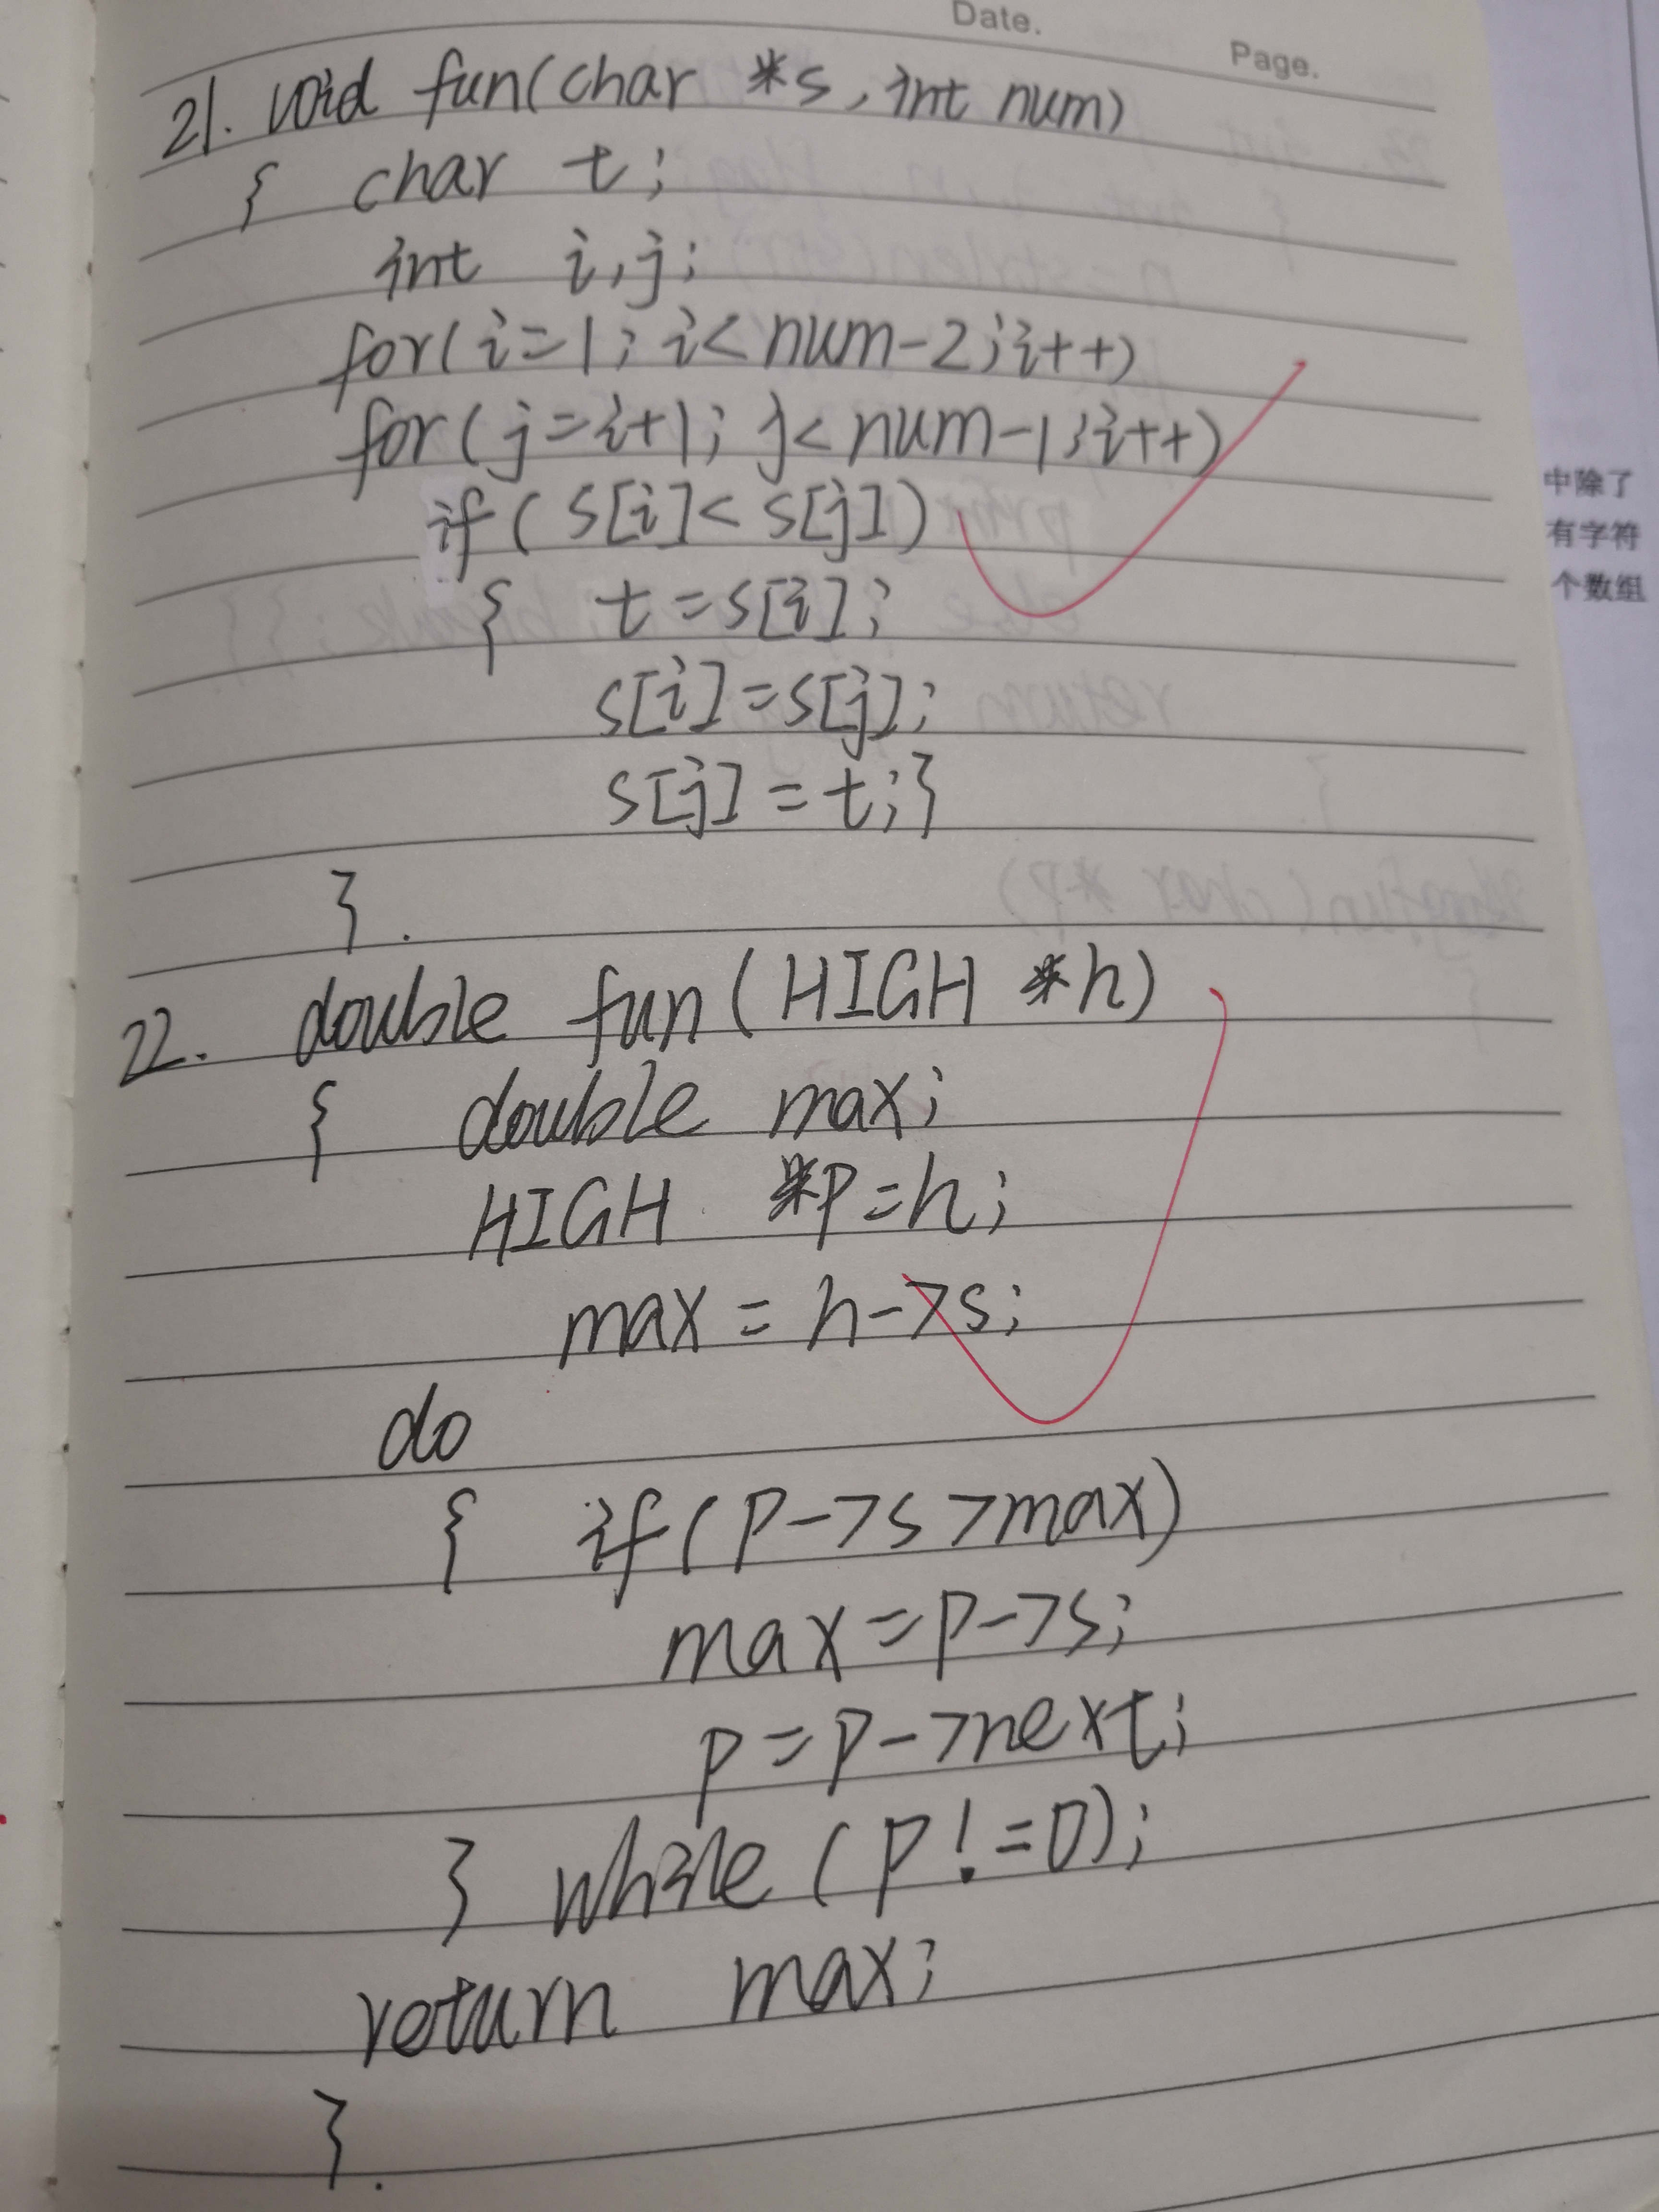 Date.
Page.
21. void fun(char *s, int num)
{ char t;
int i,j;
for(i=1; i<num-2;i++)
for(j=i+1; j<num-1;i++)
if( s[i]< s[j])
{ t=s[i];
s[i]=s[j];
s[j]=t;}
}.
22. double fun(HIGH *h)
{ double max;
HIGH *p=h;
max = h->s;
do
{ if(p->s >max)
max=p->s;
p=p->next;
} while(p!=0);
return max;
}.
中除了
有字符
个数组